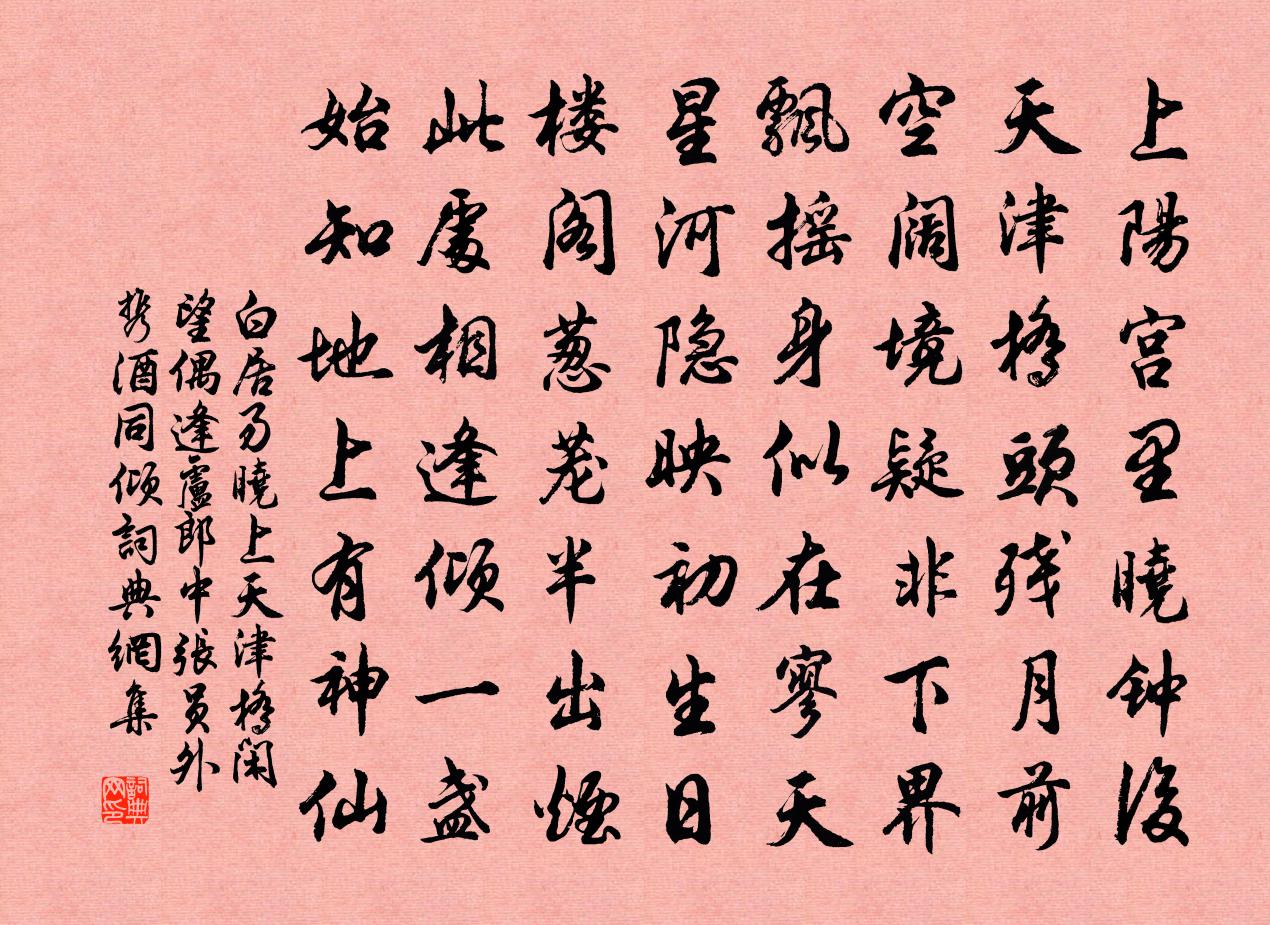 上陽宫里曉钟後
天津橋頭残月前
空阔境疑非下界
飄摇身似在寥天
星河隐映初生日
楼阁葱茏半出煙
此處相逢倾一盏
始知地上有神仙
白居易曉上天津橋闲
望偶逢盧郎中張员外
携酒同倾詞典網集
詞典
网印